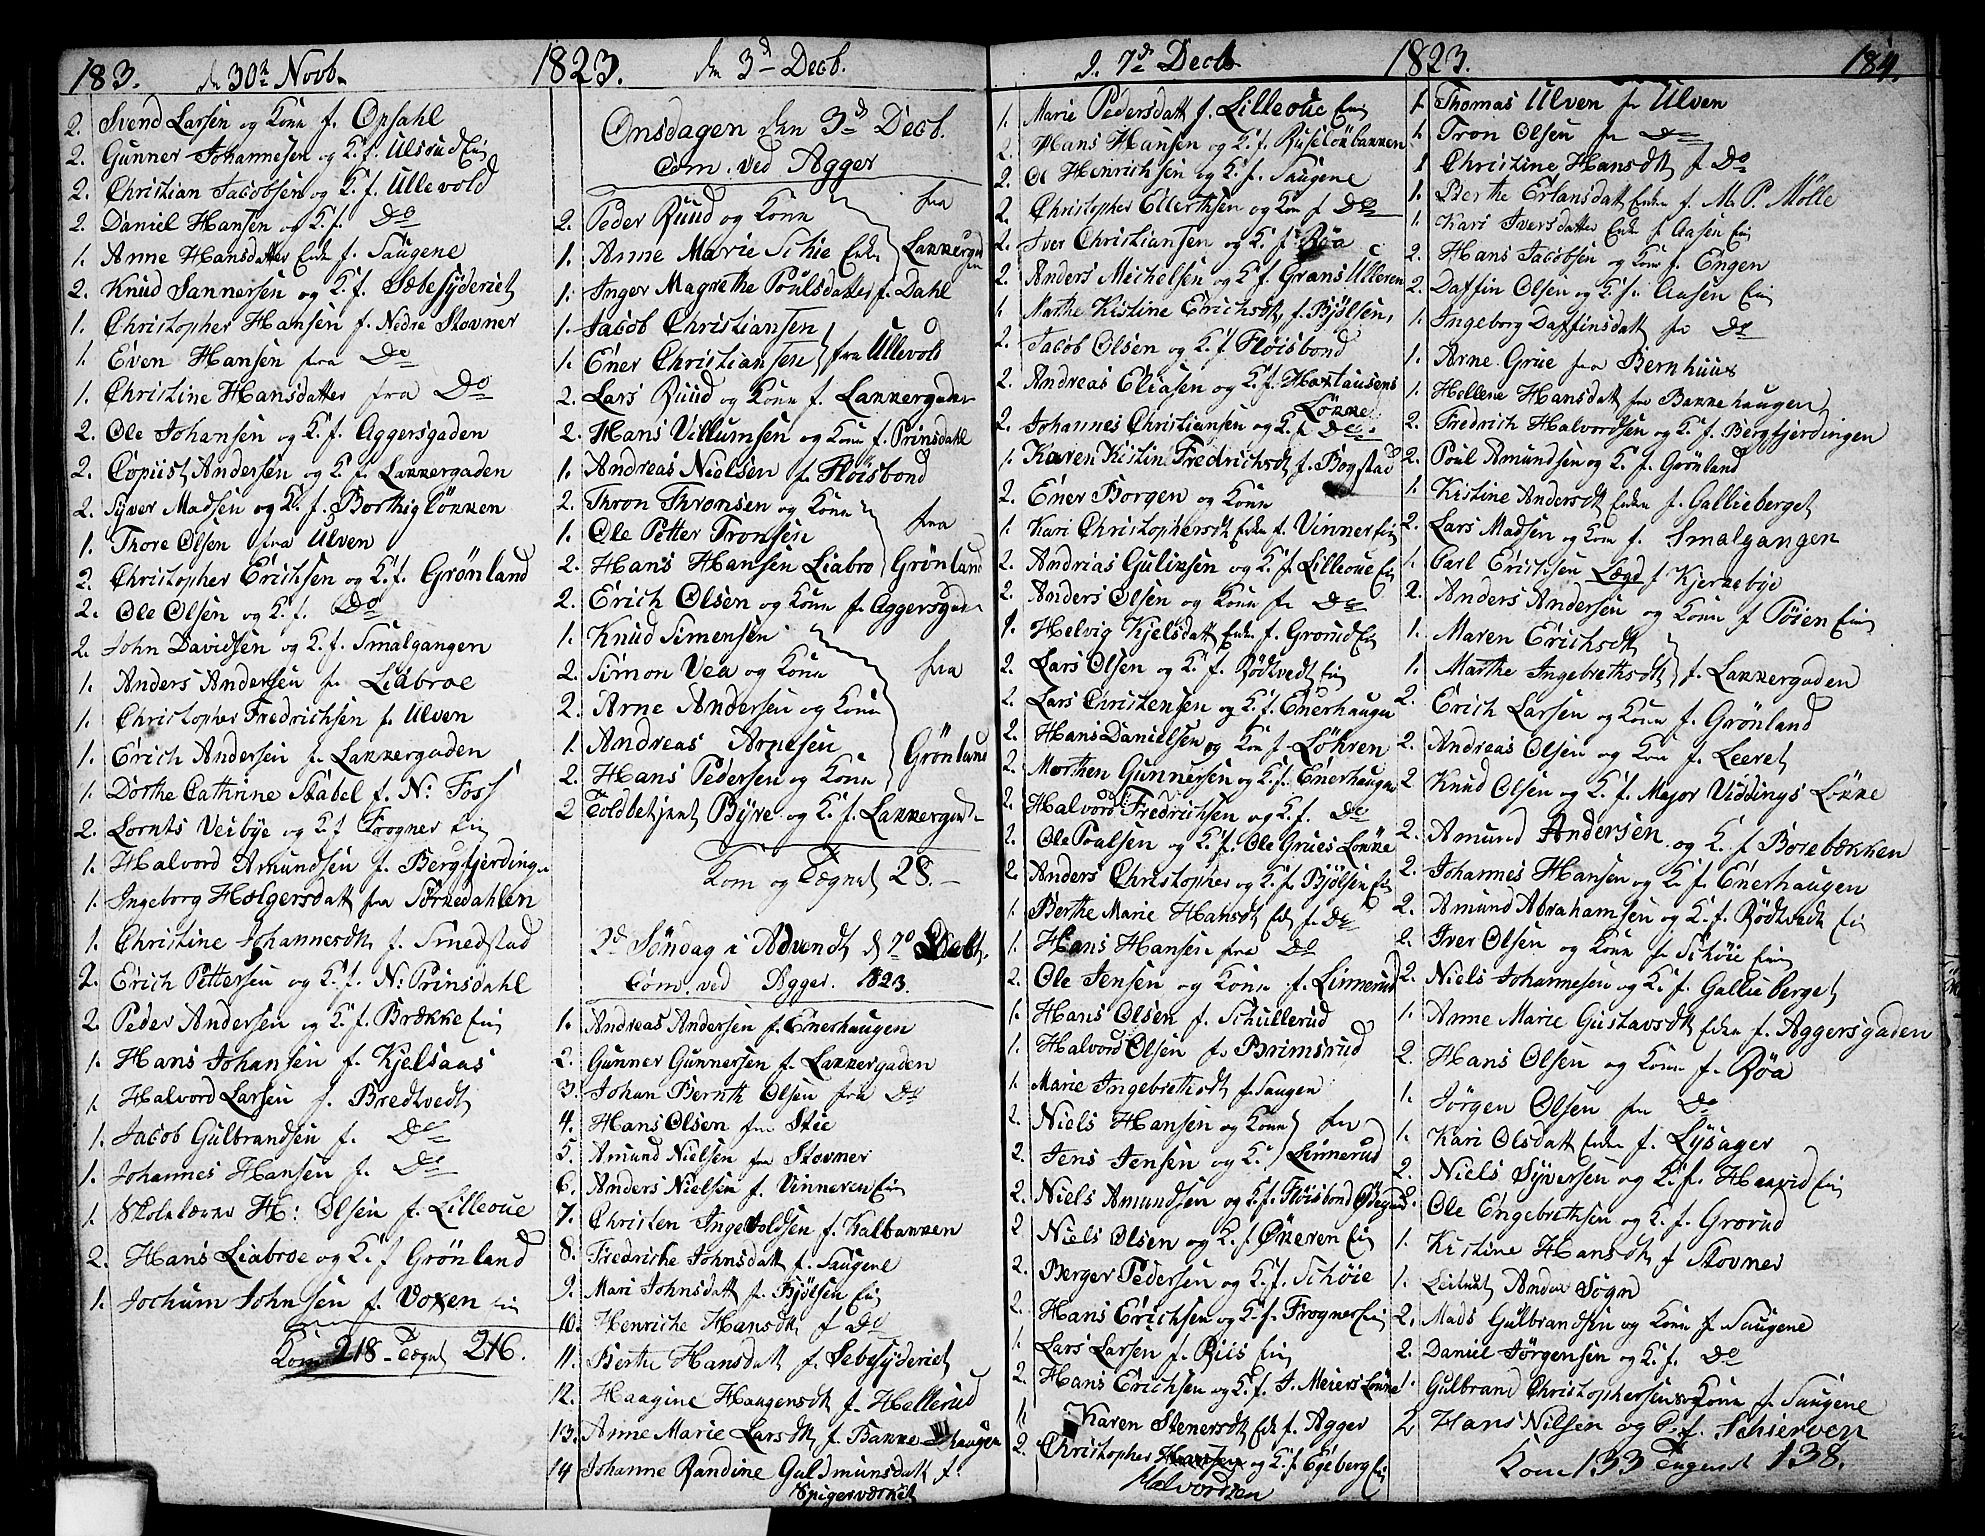 183. d 30te Novb. 1823. den 3d Decb.
2. Svend Larsen og Kone f. Opsahl
2. Gunner Johannesen og K. f. Ulsrud Ei
2. Christian Jacobsen og K. f. Ullevold
2. Daniel Hansen og K. f. Do
1. Anne Hansdatter Enke f. Saugene
2. Knud Sannersen og K. f. Sæbesyderiet
1. Christopher Hansen f. Nedre Stovner
1. Even Hansen fra Do
1. Christine Hansdatter fra Do
2. Ole Johansen og K. f. Aggersgaden
2. Copiist Andersen og K. f. Lakkergaden
2. Syver Madsen og K. f. Borthigløkken
1. Thore Olsen fra Ulven
2. Christopher Erichsen og K. f. Grönland
2. Ole Olsen og K. f. Do
2. John Davidsen og K. f. Smalgangen
1. Anders Andersen f. Liabroe
1. Christopher Fredrichsen f. Ulven
1. Erich Andersen f. Lakkergaden
1. Dorthe Cathrine Stabel f. N: Foss
2. Lornts Veibye og K. f. Frogner Ei
1. Halvord Amundsen f. Bergfjerding
1. Ingeborg Holgersdatt fra Törnedahlen
1. Christine Johannesdt f. Smedstad
2. Erich Pettersen og K. f. N: Prinsdahl
2. Peder Andersen og K. f. Brække Ei
1. Hans Johansen f. Kjelsaas
1. Halvord Larsen f. Bredtvedt
1. Jacob Gulbrandsen f. Do
1. Johannes Hansen f. Do
1. Skolelærer H: Olsen f. Lilleoue
2. Hans Liabroe og K. f. Grönland
1. Jochum Johnsen f. Voxen Ei
Kom 218 Tegnet 216.
Onsdagen den 3d Decb.
Com. ved Agger
2. Peder Ruud og Kone fra
1. Anne Marie Schie Enke Lakkergaden
1. Inger Magrethe Poulsdatter f. Dahl
1. Jacob Christiansen
1. Ener Christiansen fra Ullevold
2. Lars Ruud og Kone f. Lakkergaden
2. Hans Villumsen og Kone f. Prinsdahl
1. Andreas Nielsen f. Flöisbond
2. Thron Thronsen og Kone
1. Ole Petter Tronsen fra
2. Hans Hansen Liabro Grönland
2. Erich Olsen og Kone f. Aggersgade
1. Knud Simensen
2. Simon Vea og Kone fra
2. Arne Andersen og Kone
1. Andreas Arnesen Grönland
2. Hans Pedersen og Kone
2 Toldbetjent Byre og K. f. Lakkergad
Kom og Tegnet 28.
2d Söndag i Advendt d 7d Decb.
Com. ved Agger. 1823.
1. Andreas Andersen f. Enerhaugen
2. Gunner Gunnersen f. Lakkergaden
3. Johan Bernth Olsen fra Do
4. Hans Olsen fra Stie
5. Amund Nielsen fra Stovner
6. Anders Nielsen f. Vinneren Ei
7. Christen Ingevoldsen f. Kalbakken
8. Fredriche Johnsdatt f. Saugene
9. Mari Johnsdatt f. Bjölsen Ei
10. Henriche Hansdt f. Do
11. Berthe Hansdatt f. Sebesyderiet
12. Haagine Haagensdt f. Hellerud
13. Anne Marie Larsdt f. Bakkehaugen
14 Johanne Randine Guldmunsdatt f.
Spigerværket
d. 7d Decb 1823. 184.
1. Marie Pedersdatt f. Lilleoue Ei
2. Hans Hansen og K. f. Ruseløkbakken
2. Ol Heinrichsen og K. f. Saugene
2. Christopher Ellerthsen og Kon f Do
2. Iver Christiansen og K. f. Röa
2. Anders Michelsen og K. f. Grans Ulleren
1. Marthe Kistine Erichsdt f. Bjölsen
2. Jacob Olsen og K. f. Flöisbond
2. Andreas Eliasen og K. f. Haxtausens
Lökke
2. Johannes Christiansen og K. f. Do
1. Karen Kistin Fredrichsdt f. Bogstad
2. Ener Borgen og Kone
1. Kari Christophersdt Enke f. Vinner Ei
2. Andrias Guliksen og K. f. Lilleoue Ei
2. Anders Olsen og Kone fr Do
1. Helvig Kjelsdatt Enke f. Grorud Ei
2. Lars Olsen og K. f. Rödtvedt Ei
2. Lars Christensen og K. f. Enerhaugen
2. Hans Danielsen og Kon f. Löhren
2. Morthen Gunnersen og K. f. Enerhaugen
2. Halvord Fredrichsen og K. f. Do
2. Ole Poulsen og K. f. Ole Grues Lökke
2. Anders Christopher og K. f. Bjölsen Ei
1. Berthe Marie Hansdt Enk f. Do
1. Hans Hansen fra Do
2. Ole Jensen og Kone f. Linnerud
1. Hans Olsen f. Schullerud
1. Halvord Olsen fr Brimsrud
1. Marie Ingebrethsdt f. Saugen
2. Niels Hansen og Kone fra
2. Jens Jensen og K. Linnerud
2. Niels Amundsen og K. f. Flöisbond Ödegaard
2. Niels Olsen og K. f. Ökeren Ei
2. Berger Pedersen og K. f. Schöie
2. Hans Erichsen og K. f. Frogner Ei
1. Lars Larsen f. Riis Ei
2. Hans Erichsen og K. f. J. Meiers Lökke
1. Karen Stenersdt Enk f. Agger
2. Christopher Hansen og K. f. Egeberg Ei
Halvordsen
1. Thomas Ulven fr Ulven
1. Tron Olsen fr Do
1 Christine Hansdt f Do
1. Berthe Erlansdatt Enke f. M. P. Mölle
1. Kari Iversdatter Enk f. Aasen Ei
2. Hans Jacobsen og Kone f. Engen
2. Daffin Olsen og K. f. Aasen Ei
1. Ingeborg Daffinsdatt fr Do
1. Arne Grue fra Bernhuus
1. Hellene Hansdatt fra Bakkehaugen
2. Fredrich Halvordsen og K. f. Bergfjerdingen
2. Poul Amundsen og K. f. Grönland
1. Kistine Andersdt Enke f. Gallieberget
2. Lars Madsen og Kone f. Smalgangen
1. Carl Erichsen Lægd f. Kjerkebye
2. Anders Andersen og Kone f Töien Ei
1. Maren Erichsdt
1. Marthe Ingebrethsdt f. Lakkergaden
2. Erich Larsen og Kone f. Grönland
2. Andreas Olsen og Kone f. Leeret
2 Knud Olsen og K. f. Major Viddings Lökke
2. Amund Andersen og K. f Börebækken
2. Johannes Hansen og K. f. Enerhaugen
2. Amund Abrahamsen og K. f. Rödtvedt Ei
2. Iver Olsen og Kone f. Schöie Ei
2. Niels Johannesen og K. f. Gallieberget
1. Anne Marie Gustavsdt Enke f. Aggersgaden
2. Hans Olsen og Kone f. Röa
1. Jörgen Olsen fra Do
1. Kari Olsdatt Enke f. Lysager
2. Niels Syversen og K. f. Haavid Ei
2. Ole Engebrethsen og K. f. Grorud
1. Kistine Hansdt f Stovner
1. Anden Sogn
2. Mads Gulbrandsen og Kone f Saugene
2. Daniel Jörgensen og K. f. Do
1. Gulbrand Christophersen og Kone f. Saugene
2 Hans Nilsen og K. f. Schierven
Kom 133 Tegnet 138.